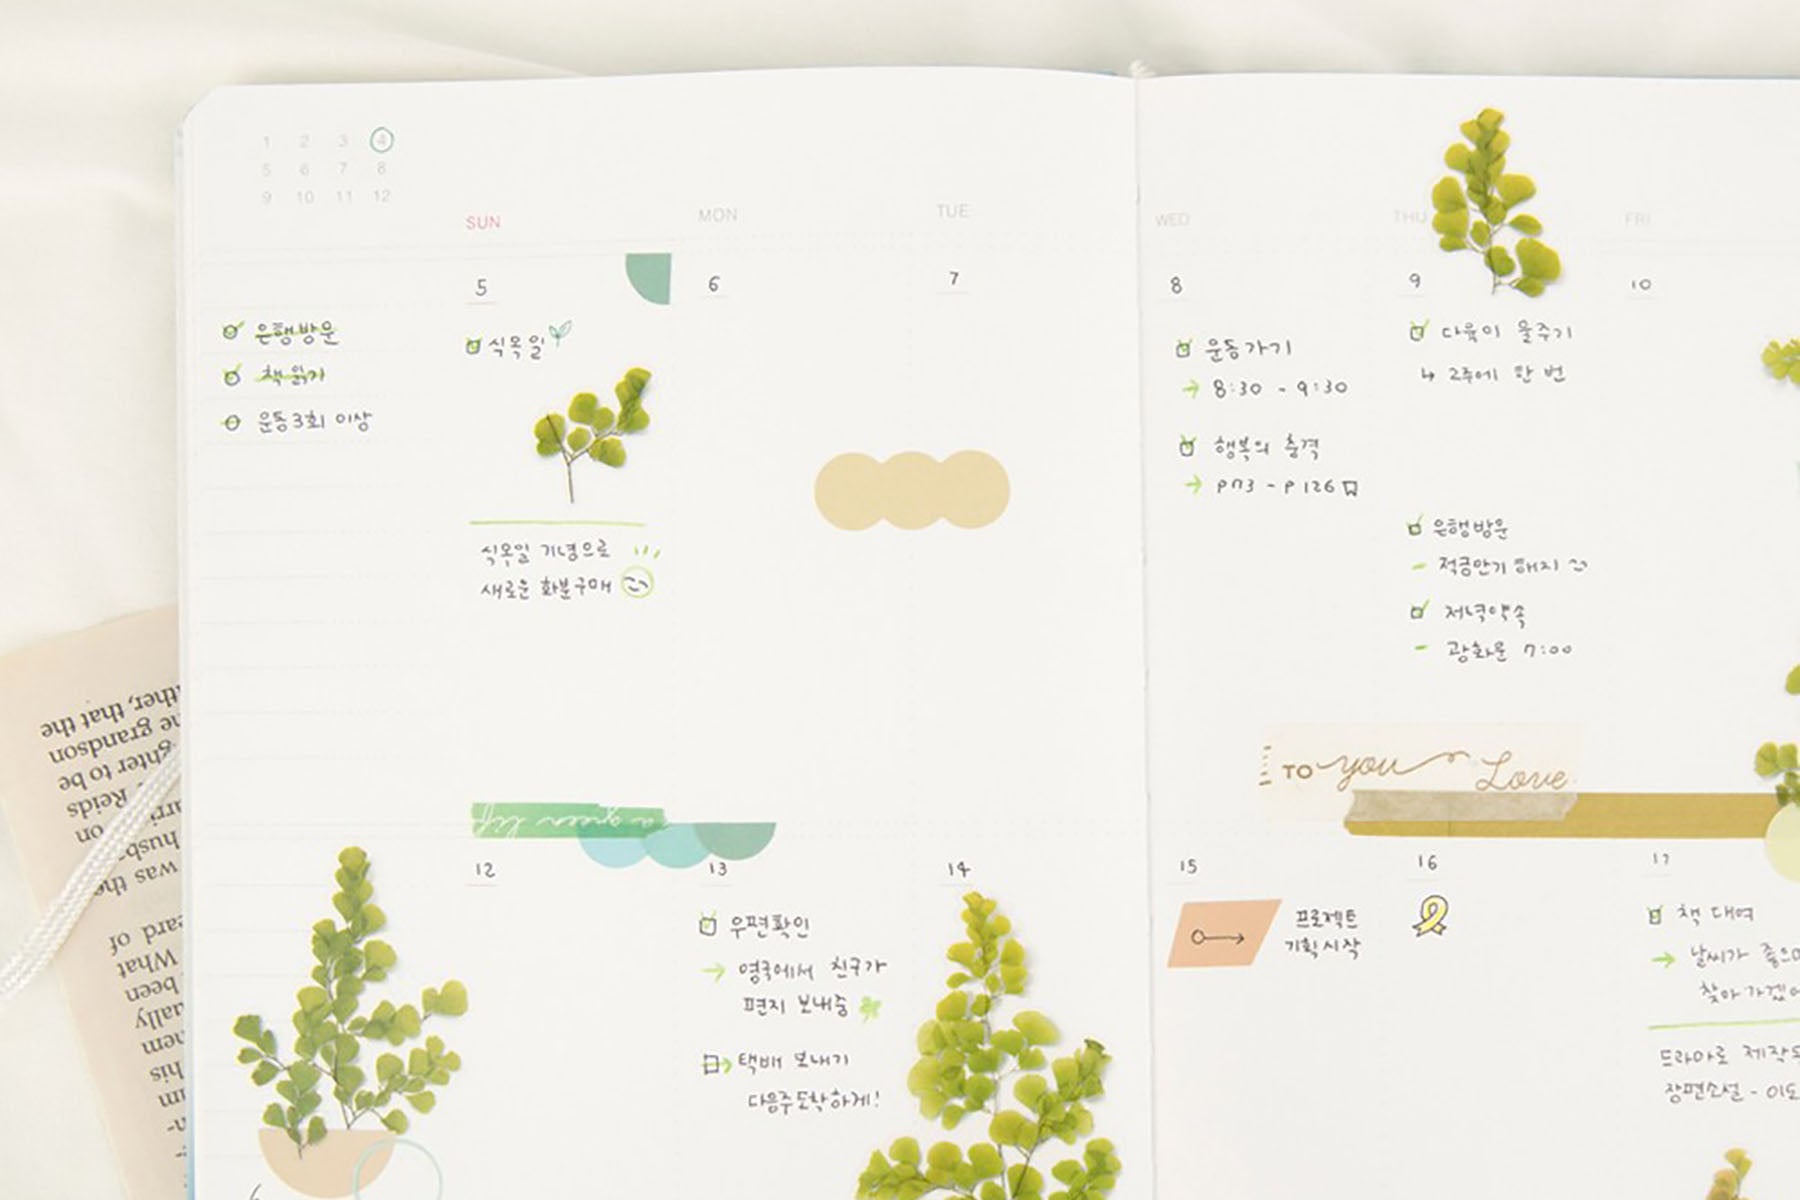 1 2 3 4
5 6 7 8
9 10 11 12
SUN MON TUE WED THU FRI
5 6 7 8 9 10
은행방문
책 읽기
운동 3회 이상
식목일
식목일 기념으로
새로운 화분구매
운동가기
→ 8:30 - 9:30
행복의 충격
→ p73 - p126
다육이 물주기
↳ 2주에 한 번
은행방문
- 적금만기 해지
저녁약속
- 광화문 7:00
TO you Love
a green life
12 13 14 15 16 17
우편확인
→ 영국에서 친구가
편지 보내줌
택배 보내기
다음주도착하게!
프로젝트
기획시작
책 대여
→ 날씨가
찾아가겠
드라마로 제작
장편소설 - 이도
ther, that the
grandson
ghter to be
Reids
on
husb
was the
eard of
What
been
ually
hem
his
um